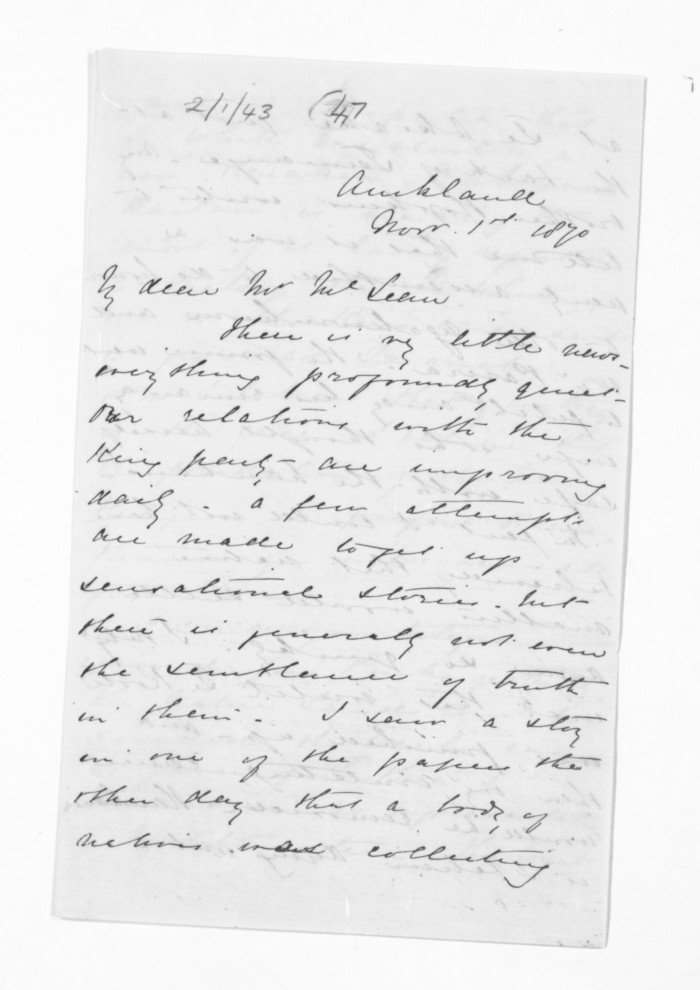 2/1/43 (47
Auckland
Novr. 1st 1870
My dear Mr McLean
There is very little news -
everything profoundly quiet -
Our relations with the
King party are improving
daily - a few attempts
are made to get up
sensational stories - but
there is generally not even
the semblance of truth
in them - I saw a story
in one of the papers the
other day that a body of
natives was collecting